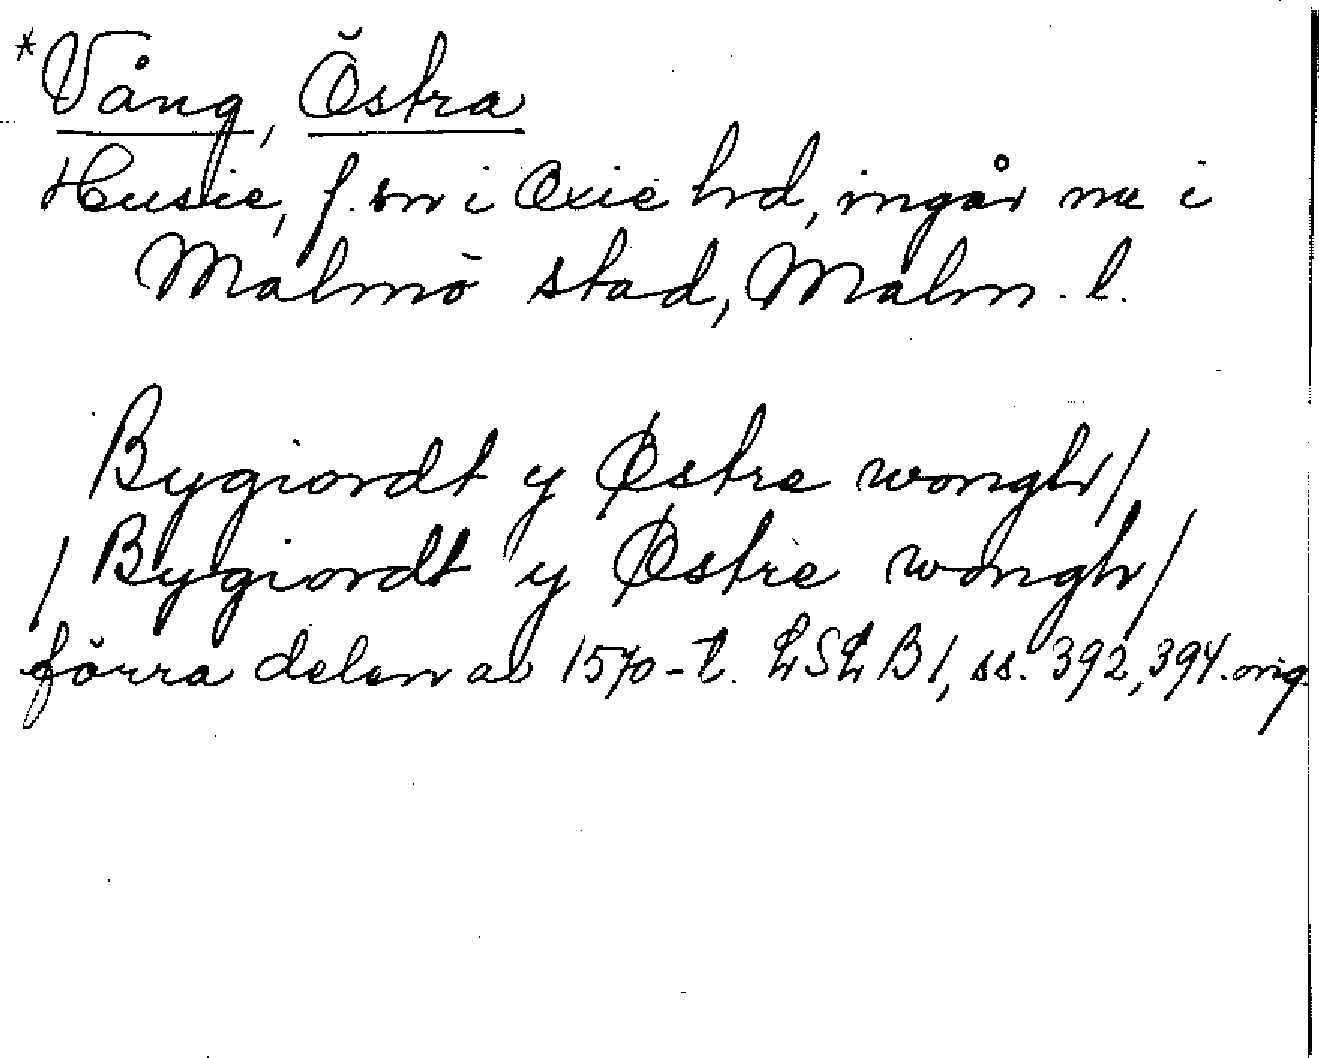 *Vång, Östra
Husie, f. sn i Oxie hd, ingår nu i
Malmö stad, Malm. l.
Bygiordt y Østre wongh/
/Bygiordt y Østre wongh/
förra delen av 1570-t. LSLB1, ss. 392, 394. orig.